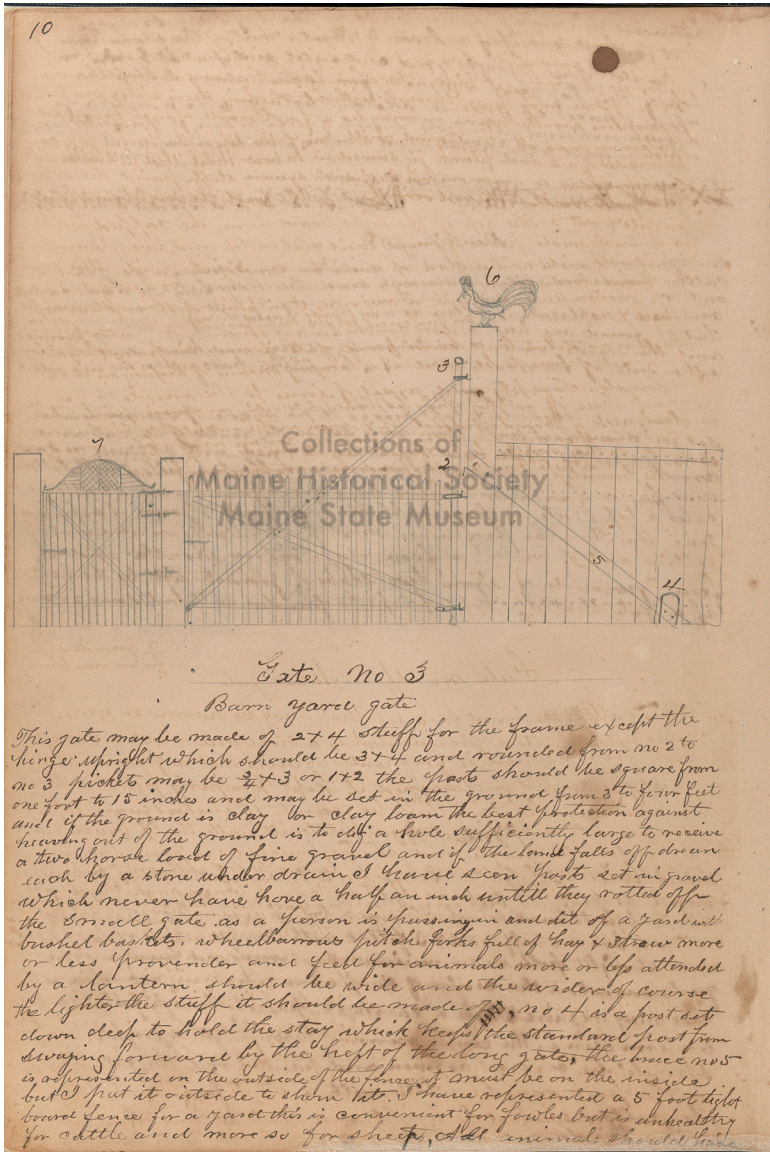 10
6
3
7
2
5
4
Collections of
Maine Historical Society
Maine State Museum
Gate No 3
Barn yard gate
This gate may be made of 2x4 stuff for the frame except the
hinge upright which should be 3x4 and rounded from no 2 to
no 3 pickets may be 3/4x3 or 1x2 the posts should be square from
one foot to 15 inches and may be set in the ground from 3 to four feet
and if the ground is clay or clay loam the best protection against
heaving out of the ground is to dig a hole sufficiently large to receive
a two horse load of fine gravel and if the land falls off drean
each by a stone under drain I have seen posts set in gravel
which never have hove a half an inch untill they rotted off
the small gate as a person is passing in and out of a yard with
bushel baskets, wheelbarrows pitch forks full of hay & straw more
or less provender and feed for animals more or less attended
by a lantern, should be wide and the wider of course
the lighter the stuff it should be made of, no 4 is a post set
down deep to hold the stay which keeps the standard post from
swaying forward by the heft of the long gate, the brace no 5
is represented on the outside of the fence it must be on the inside
but I put it outside to show it. I have represented a 5 foot tight
board fence for a yard this is convenient for fowles but is unhealthy
for cattle and more so for sheep, All animals should have